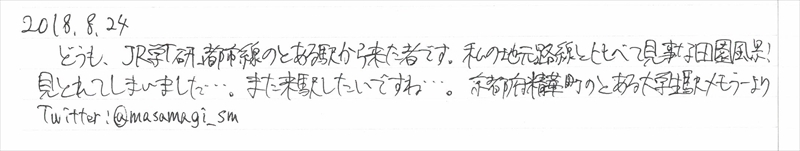 2018.8.24
どうも、JR学研都市線のとある駅から来た者です。私の地元路線とくらべて見事な田園風景!
見とれてしまいました…。また来駅したいですね…。京都府精華町のとある大学生駅メモラーより
Twitter:@masamagi_sm